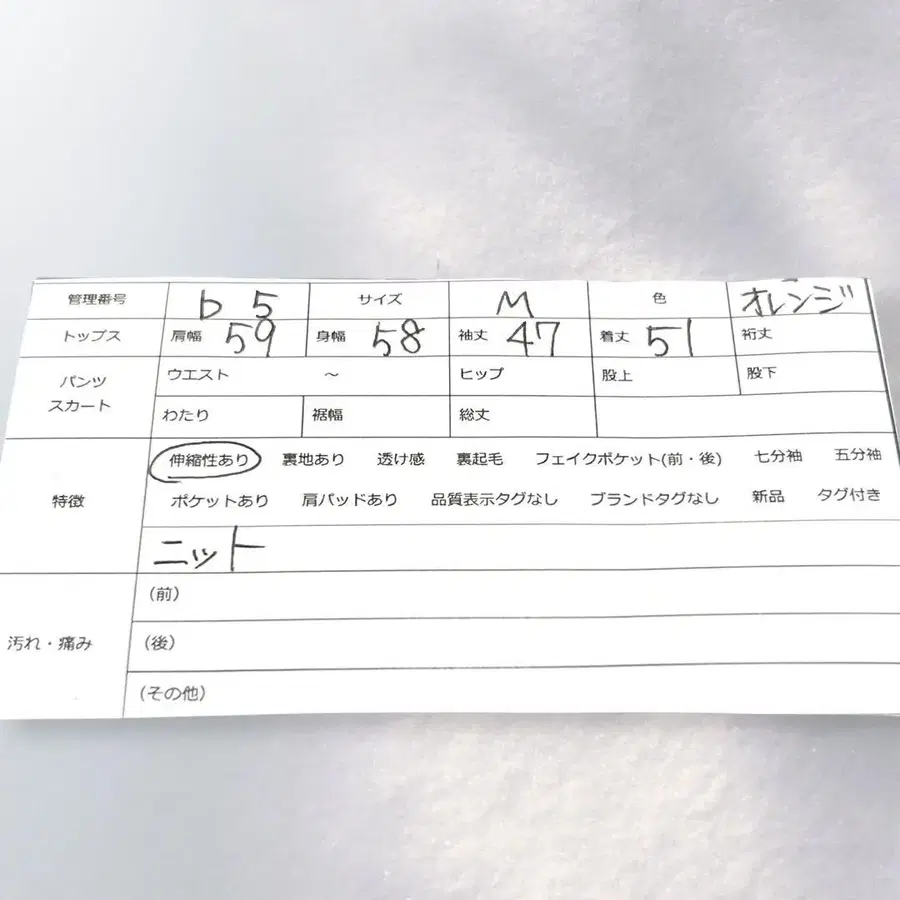 管理番号 b 5 サイズ M 色 オレンジ
トップス 肩幅 59 身幅 58 袖丈 47 着丈 51 裄丈
パンツ スカート ウエスト ～ ヒップ 股上 股下
わたり 裾幅 総丈
特徴 伸縮性あり 裏地あり 透け感 裏起毛 フェイクポケット(前・後) 七分袖 五分袖
ポケットあり 肩パッドあり 品質表示タグなし ブランドタグなし 新品 タグ付き
ニット
汚れ・痛み (前)
(後)
(その他)